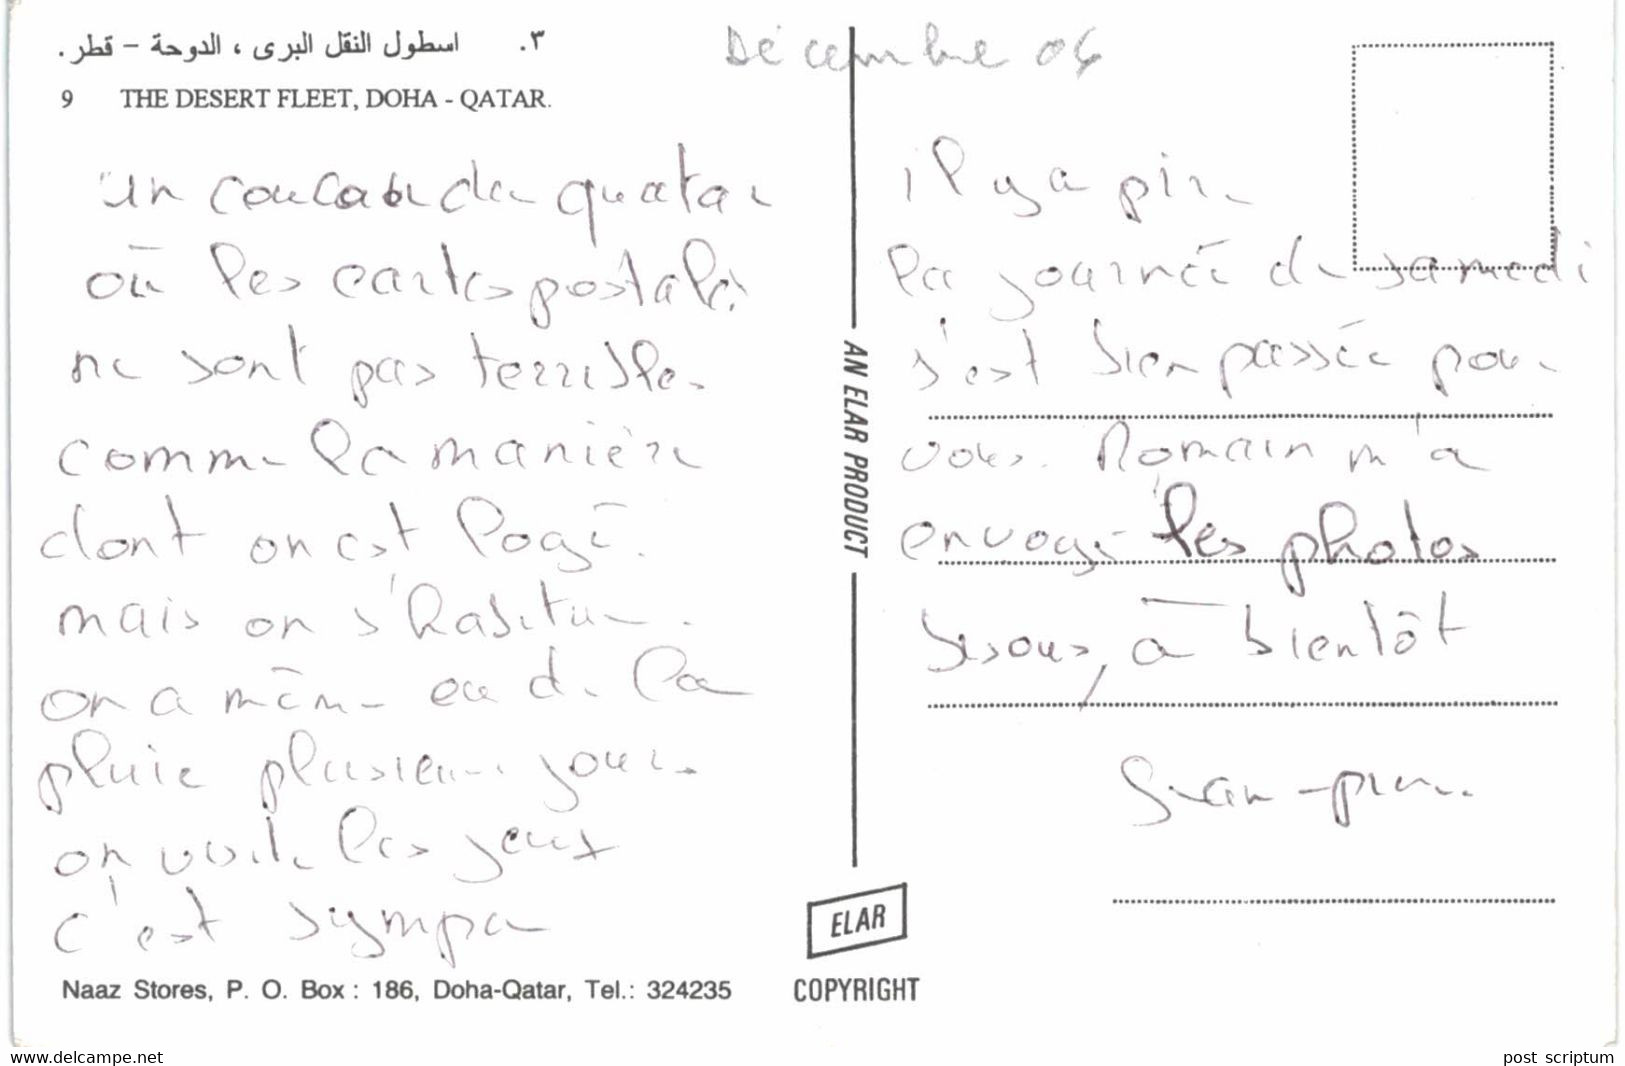 ٣. اسطول النقل البرى ، الدوحة – قطر .
9 THE DESERT FLEET, DOHA - QATAR.
Décembre 06
un coucou de quatar
où les cartes postales
ne sont pas terribles
comme la manière
dont on est logé.
mais on s'habitue.
on a même eu de la
pluie plusieurs jours
on voit les jeux
c'est sympa
il y a pire
la journée de samedi
s'est bien passée pour
vous. Romain m'a
envoyé les photos
bisous, à bientôt
Jean-pierre
AN ELAR PRODUCT
ELAR
COPYRIGHT
Naaz Stores, P. O. Box : 186, Doha-Qatar, Tel.: 324235
www.delcampe.net
post scriptum